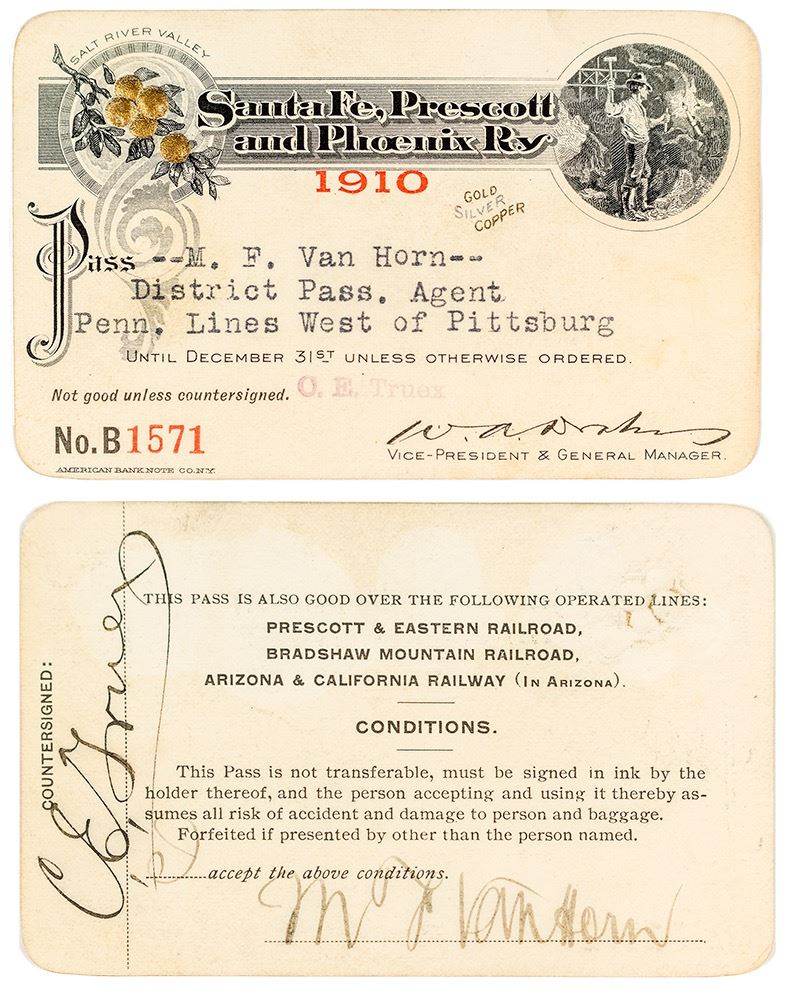 SALT RIVER VALLEY
Santa Fe, Prescott
and Phœnix Ry
1910
GOLD
SILVER
COPPER
Pass --M. F. Van Horn--
District Pass. Agent
Penn. Lines West of Pittsburg
UNTIL DECEMBER 31ST UNLESS OTHERWISE ORDERED.
Not good unless countersigned. C. E. Truex
No. B1571
W. A. Drake
VICE-PRESIDENT & GENERAL MANAGER.
AMERICAN BANK NOTE CO. N.Y.
COUNTERSIGNED:
C. E. Truex
THIS PASS IS ALSO GOOD OVER THE FOLLOWING OPERATED LINES:
PRESCOTT & EASTERN RAILROAD,
BRADSHAW MOUNTAIN RAILROAD,
ARIZONA & CALIFORNIA RAILWAY (IN ARIZONA).
CONDITIONS.
This Pass is not transferable, must be signed in ink by the
holder thereof, and the person accepting and using it thereby as-
sumes all risk of accident and damage to person and baggage.
Forfeited if presented by other than the person named.
accept the above conditions.
M F Van Horn